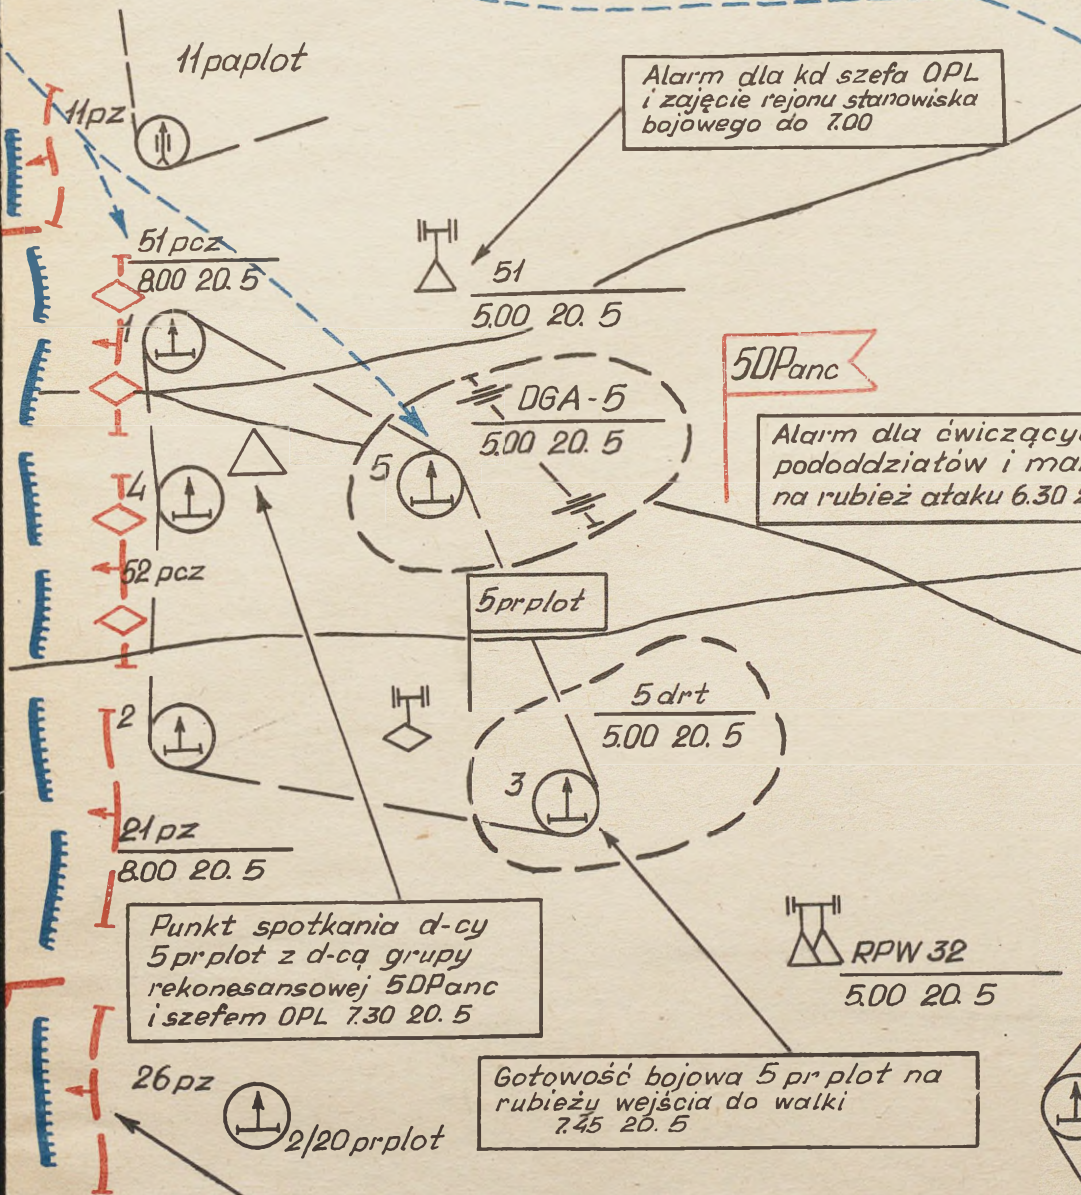 11paplot
11pz
Alarm dla kd szefa OPL
i zajęcie rejonu stanowiska
bojowego do 7.00
51pcz
8.00 20. 5
51
5.00 20. 5
1
DGA-5
5.00 20. 5
5
5DPanc
Alarm dla
pododdziałów i
na rubież ataku 6.30
4
52pcz
5prplot
2
5drt
5.00 20. 5
3
21pz
8.00 20. 5
Punkt spotkania d-cy
5prplot z d-cą grupy
rekonesansowej 5DPanc
i szefem OPL 7.30 20. 5
RPW 32
5.00 20. 5
Gotowość bojowa 5 prplot na
rubieży wejścia do walki
7.45 20. 5
26pz
2/20prplot